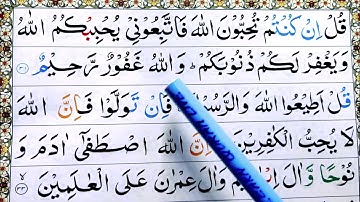 قُلْ اِنْ كُنْتُمْ تُحِبُّوْنَ اللّٰهَ فَاتَّبِعُوْنِیْ یُحْبِبْكُمُ اللّٰهُ
وَیَغْفِرْ لَكُمْ ذُنُوْبَكُمْ ؕ وَاللّٰهُ غَفُوْرٌ رَّحِیْمٌ ۝۳۱
قُلْ اَطِیْعُوا اللّٰهَ وَالرَّسُوْلَ فَاِنْ تَوَلَّوْا فَاِنَّ اللّٰهَ
لَا یُحِبُّ الْكٰفِرِیْنَ ۝۳۲ اِنَّ اللّٰهَ اصْطَفٰۤی اٰدَمَ وَ
نُوْحًا وَّاٰلَ اِبْرٰهِیْمَ وَاٰلَ عِمْرٰنَ عَلَی الْعٰلَمِیْنَ ۝۳۳